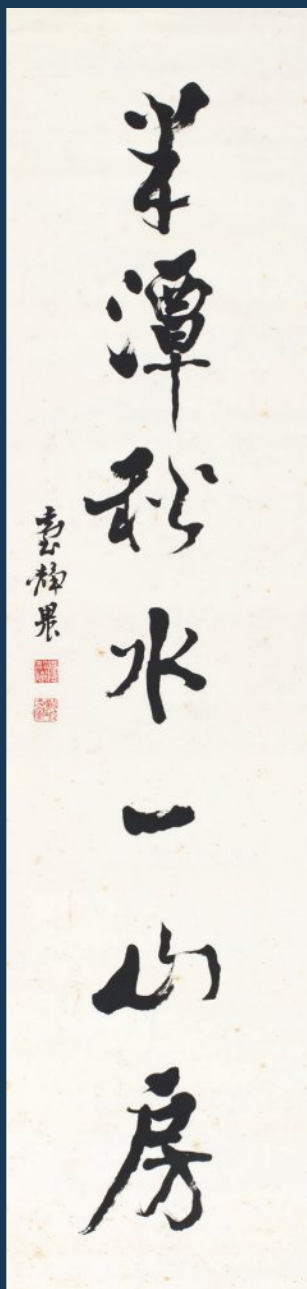 半潭秋水一山房
臺靜農